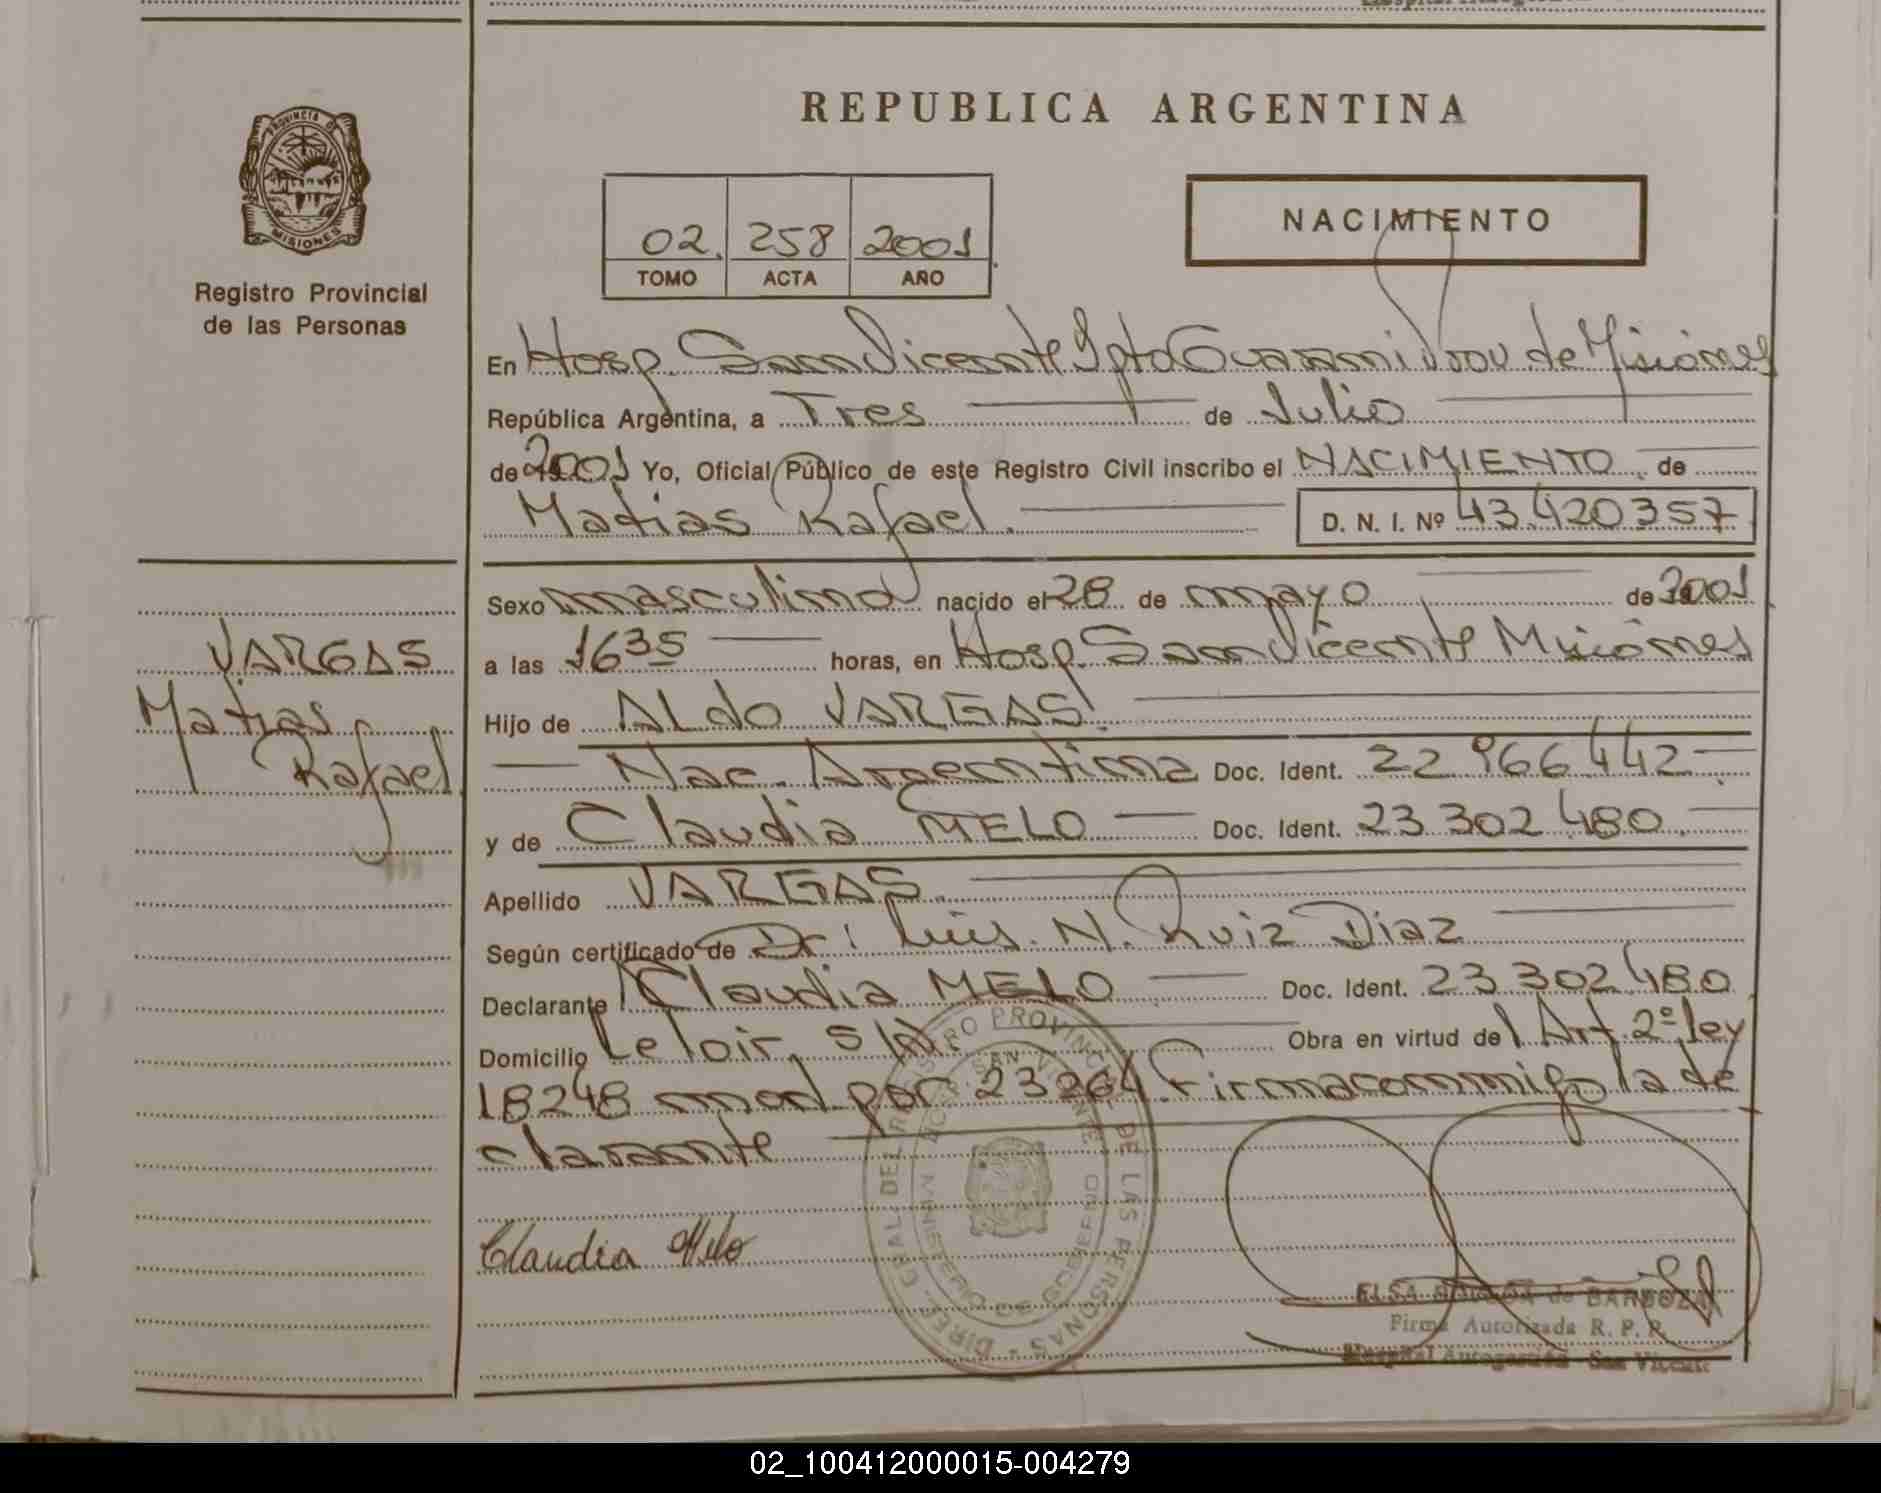 REPUBLICA ARGENTINA
PROVINCIA DE
MISIONES
Registro Provincial
de las Personas
02 258 2001
TOMO ACTA AÑO
NACIMIENTO
En Hosp. San Vicente Dpto Guarani Prov. de Misiones
República Argentina, a Tres de Julio
de 2001 Yo, Oficial Público de este Registro Civil inscribo el NACIMIENTO de
Matias Rafael. D. N. I. Nº 43 420357
Sexo masculino nacido el 28 de mayo de 2001
a las 16 35 horas, en Hosp. San Vicente Misiones
Hijo de ALdo VARGAS
Nac. Argentina Doc. Ident. 22 966 442
y de Claudia MELO Doc. Ident. 23 302 480
Apellido VARGAS
Según certificado de Dr. Luis. N. Ruiz Diaz
Declarante Claudia MELO Doc. Ident. 23 302 480
Domicilio Leloir, S/N. Obra en virtud del Art. 2º ley
18248 mod por 23264. Firma conmigo la de
clarante
VARGAS
Matias
Rafael
Claudia Melo
DIREC. GRAL. DEL REGISTRO PROVINCIAL DE LAS PERSONAS
MINISTERIO DE GOBIERNO
HOSP. SAN VICENTE
ELSA de BARBOZA
Firma Autorizada R. P. P.
Hospital Autogestión San Vicente
02_100412000015-004279